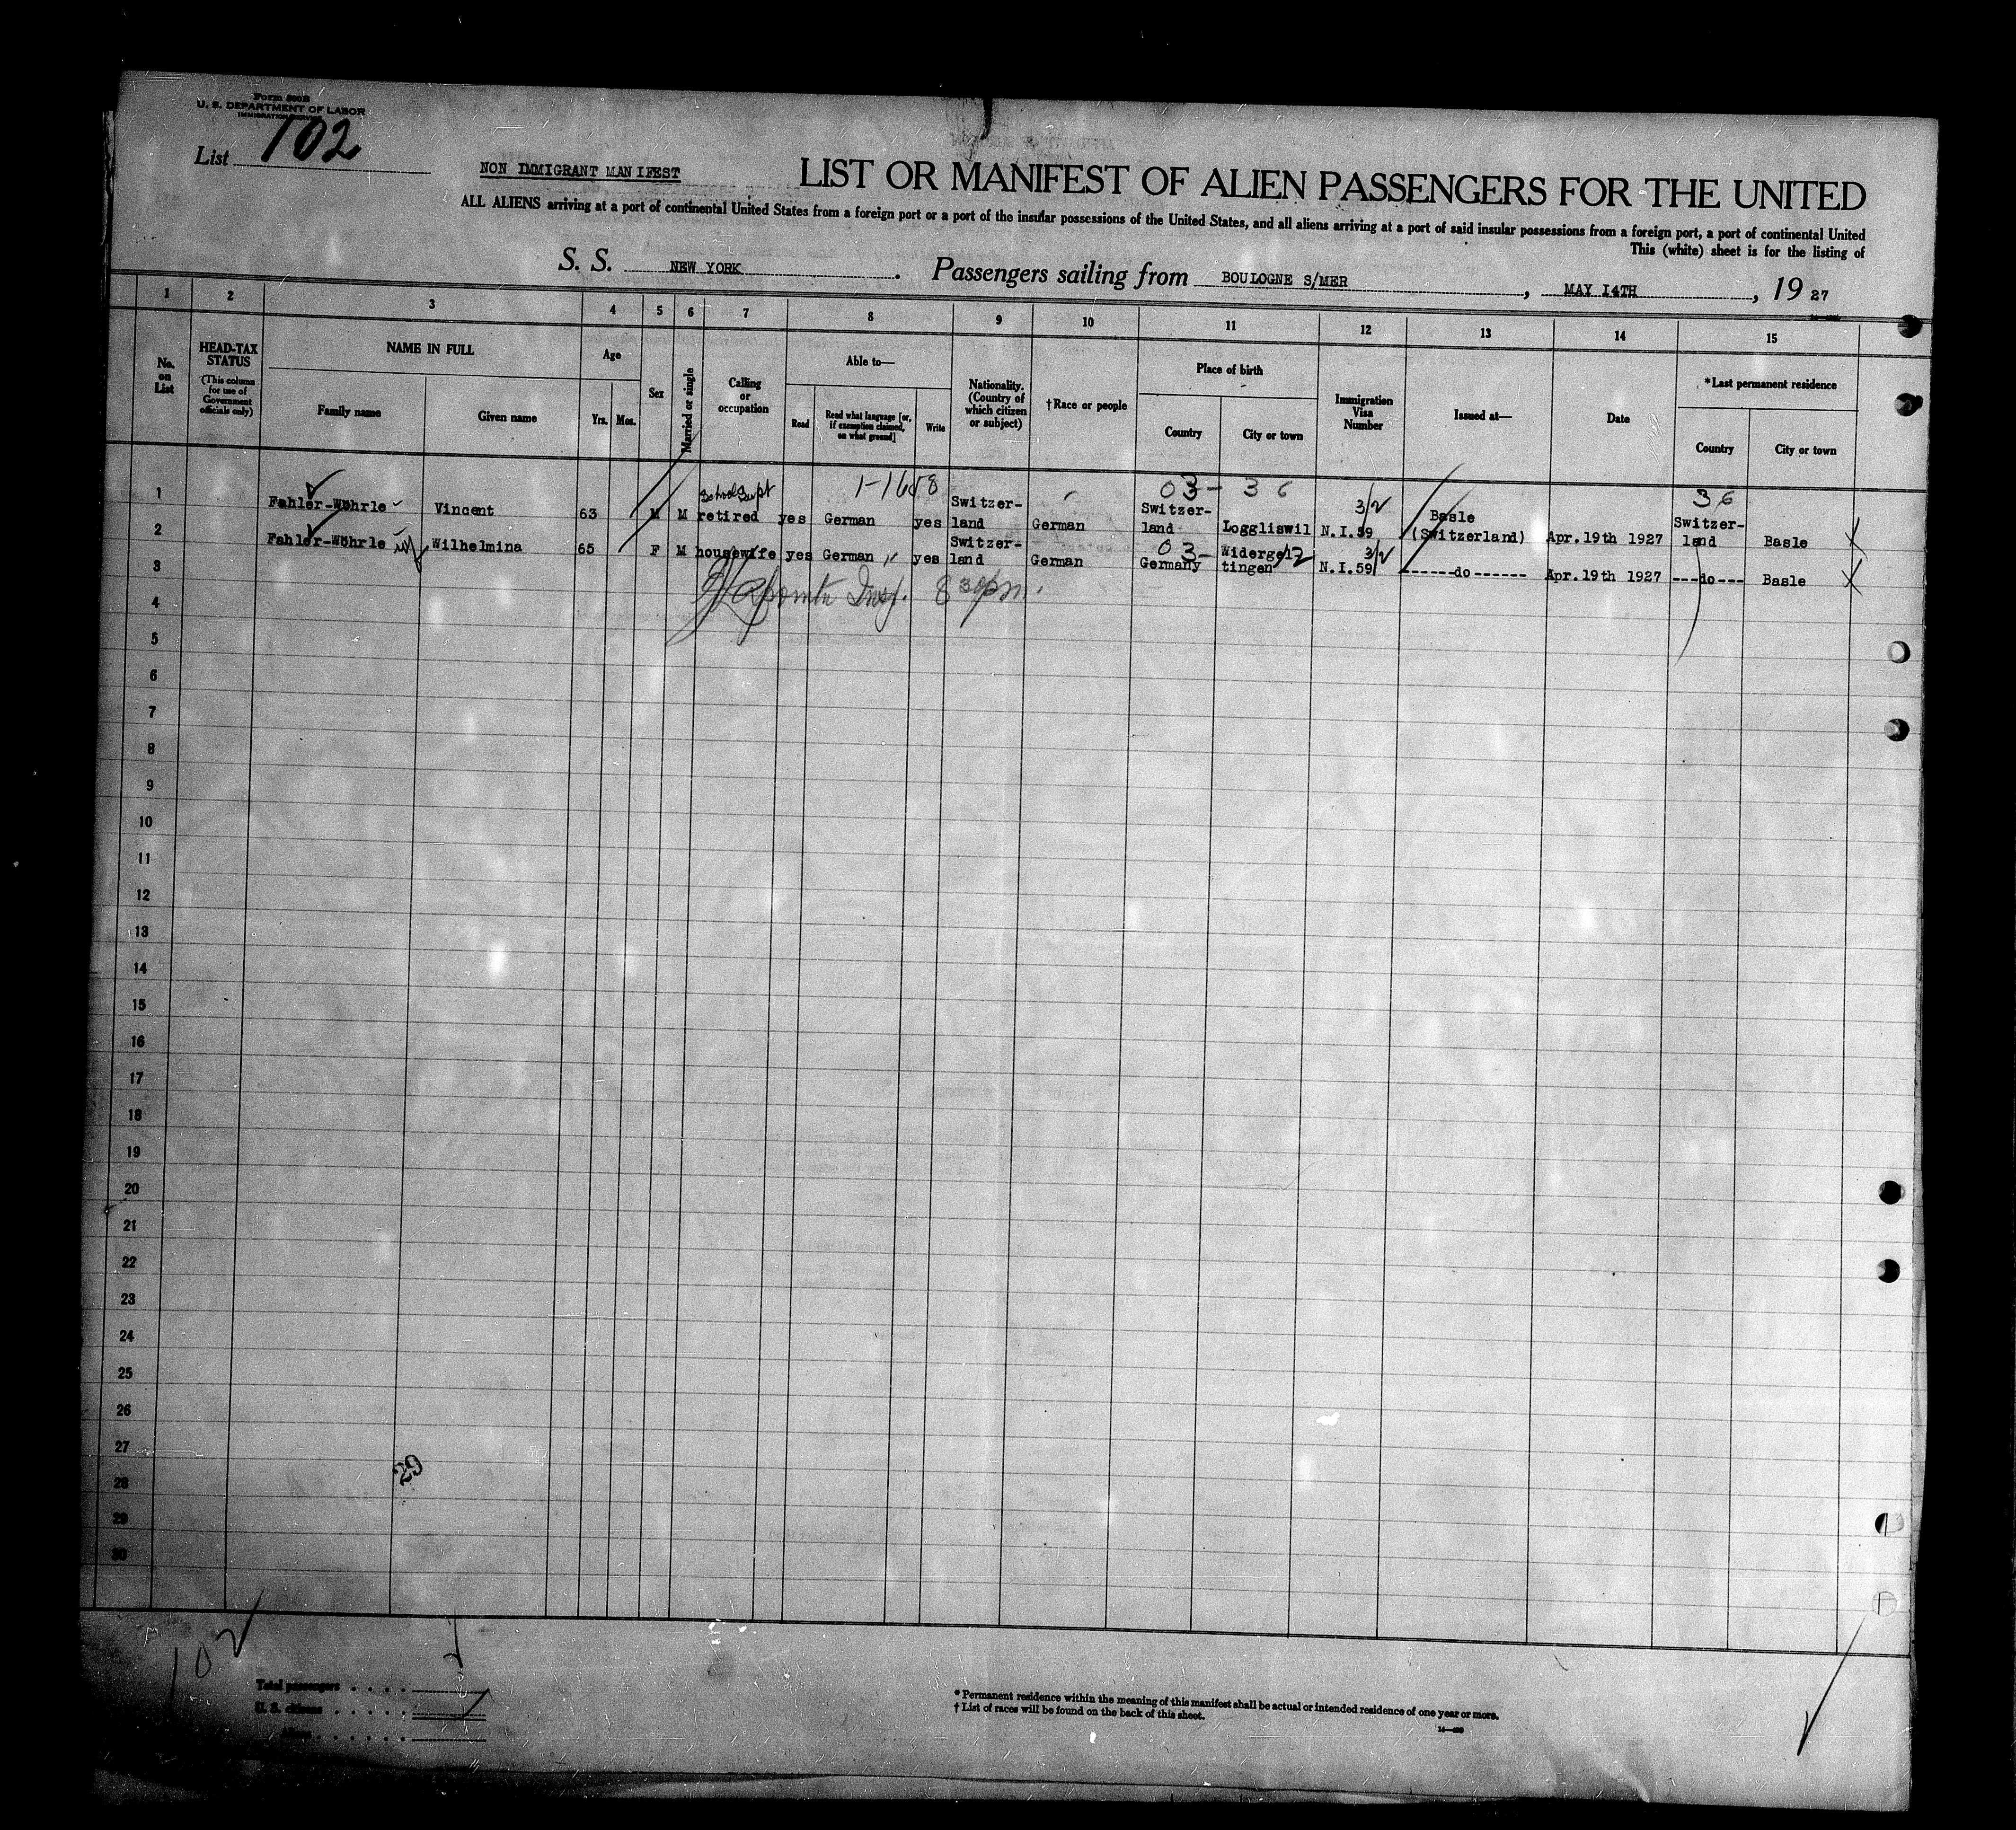 Form 500B
U. S. DEPARTMENT OF LABOR
IMMIGRATION SERVICE
List 102
NON IMMIGRANT MANIFEST
LIST OR MANIFEST OF ALIEN PASSENGERS FOR THE UNITED
ALL ALIENS arriving at a port of continental United States from a foreign port or a port of the insular possessions of the United States, and all aliens arriving at a port of said insular possessions from a foreign port, a port of continental United
This (white) sheet is for the listing of
S. S. NEW YORK. Passengers sailing from BOULOGNE S/MER, MAY I4TH, 19 27
1 2 3 4 5 6 7 8 9 10 11 12 13 14 15
No. on List
HEAD-TAX STATUS
(This column for use of Government officials only)
NAME IN FULL
Family name
Given name
Age
Yrs. Mos.
Sex
Married or single
Calling or occupation
Able to—
Read
Read what language [or, if exemption claimed, on what ground]
Write
Nationality. (Country of which citizen or subject)
†Race or people
Place of birth
Country
City or town
Immigration Visa Number
Issued at—
Date
*Last permanent residence
Country
City or town
School Supt 1-1658 03- 36 3/2 36
1 Fahler-Wöhrle Vincent 63 M M retired yes German yes Switzer-land German Switzer-land Loggliswil N.I.59 Basle (Switzerland) Apr.19th 1927 Switzer-land Basle X
03- 12 3/2
2 Fahler-Wöhrle wf Wilhelmina 65 F M housewife yes German " yes Switzer-land German Germany Widergeltingen N.I.59 ------do------ Apr.19th 1927 ---do--- Basle X
3
Insp. 8 30 pm.
4
5
6
7
8
9
10
11
12
13
14
15
16
17
18
19
20
21
22
23
24
25
26
27
29
28
29
30
102
Total passengers . . . .
U. S. citizens . . . . .
Aliens . . . . . .
* Permanent residence within the meaning of this manifest shall be actual or intended residence of one year or more.
† List of races will be found on the back of this sheet.